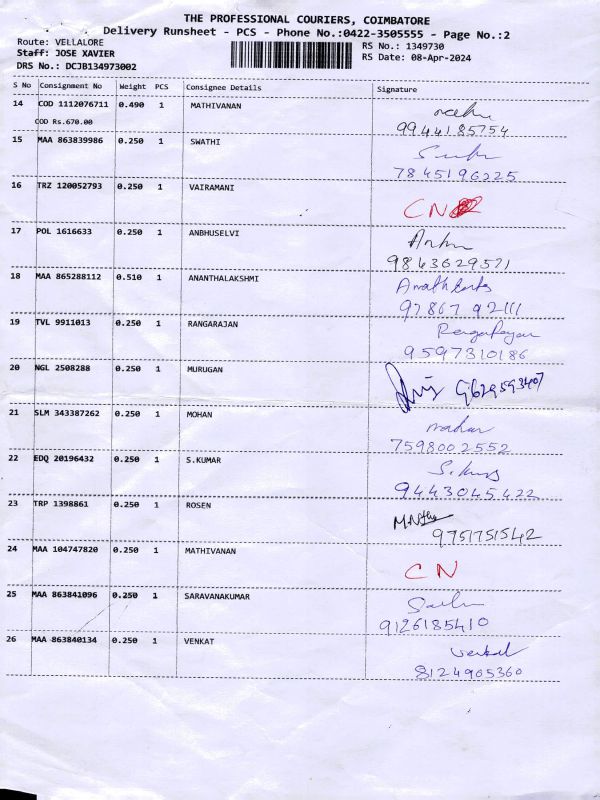 THE PROFESSIONAL COURIERS, COIMBATORE
Delivery Runsheet - PCS - Phone No.:0422-3505555 - Page No.:2
Route: VELLALORE
RS No.: 1349730
Staff: JOSE XAVIER
RS Date: 08-Apr-2024
DRS No.: DCJB134973002
S No Consignment No Weight PCS Consignee Details Signature
14 COD 1112076711 0.490 1 MATHIVANAN
COD Rs.670.00
9944185754
15 MAA 863839986 0.250 1 SWATHI
7845196225
16 TRZ 120052793 0.250 1 VAIRAMANI
CN
17 POL 1616633 0.250 1 ANBHUSELVI
9843629571
18 MAA 865288112 0.510 1 ANANTHALAKSHMI
97867 92111
19 TVL 9911013 0.250 1 RANGARAJAN
9597310186
20 NGL 2508288 0.250 1 MURUGAN
9629593407
21 SLM 343387262 0.250 1 MOHAN
mohan
7598002552
22 EDQ 20196432 0.250 1 S.KUMAR
9443045422
23 TRP 1398861 0.250 1 ROSEN
9751751542
24 MAA 104747820 0.250 1 MATHIVANAN
CN
25 MAA 863841096 0.250 1 SARAVANAKUMAR
9126185410
26 MAA 863840134 0.250 1 VENKAT
venkat
8124905360